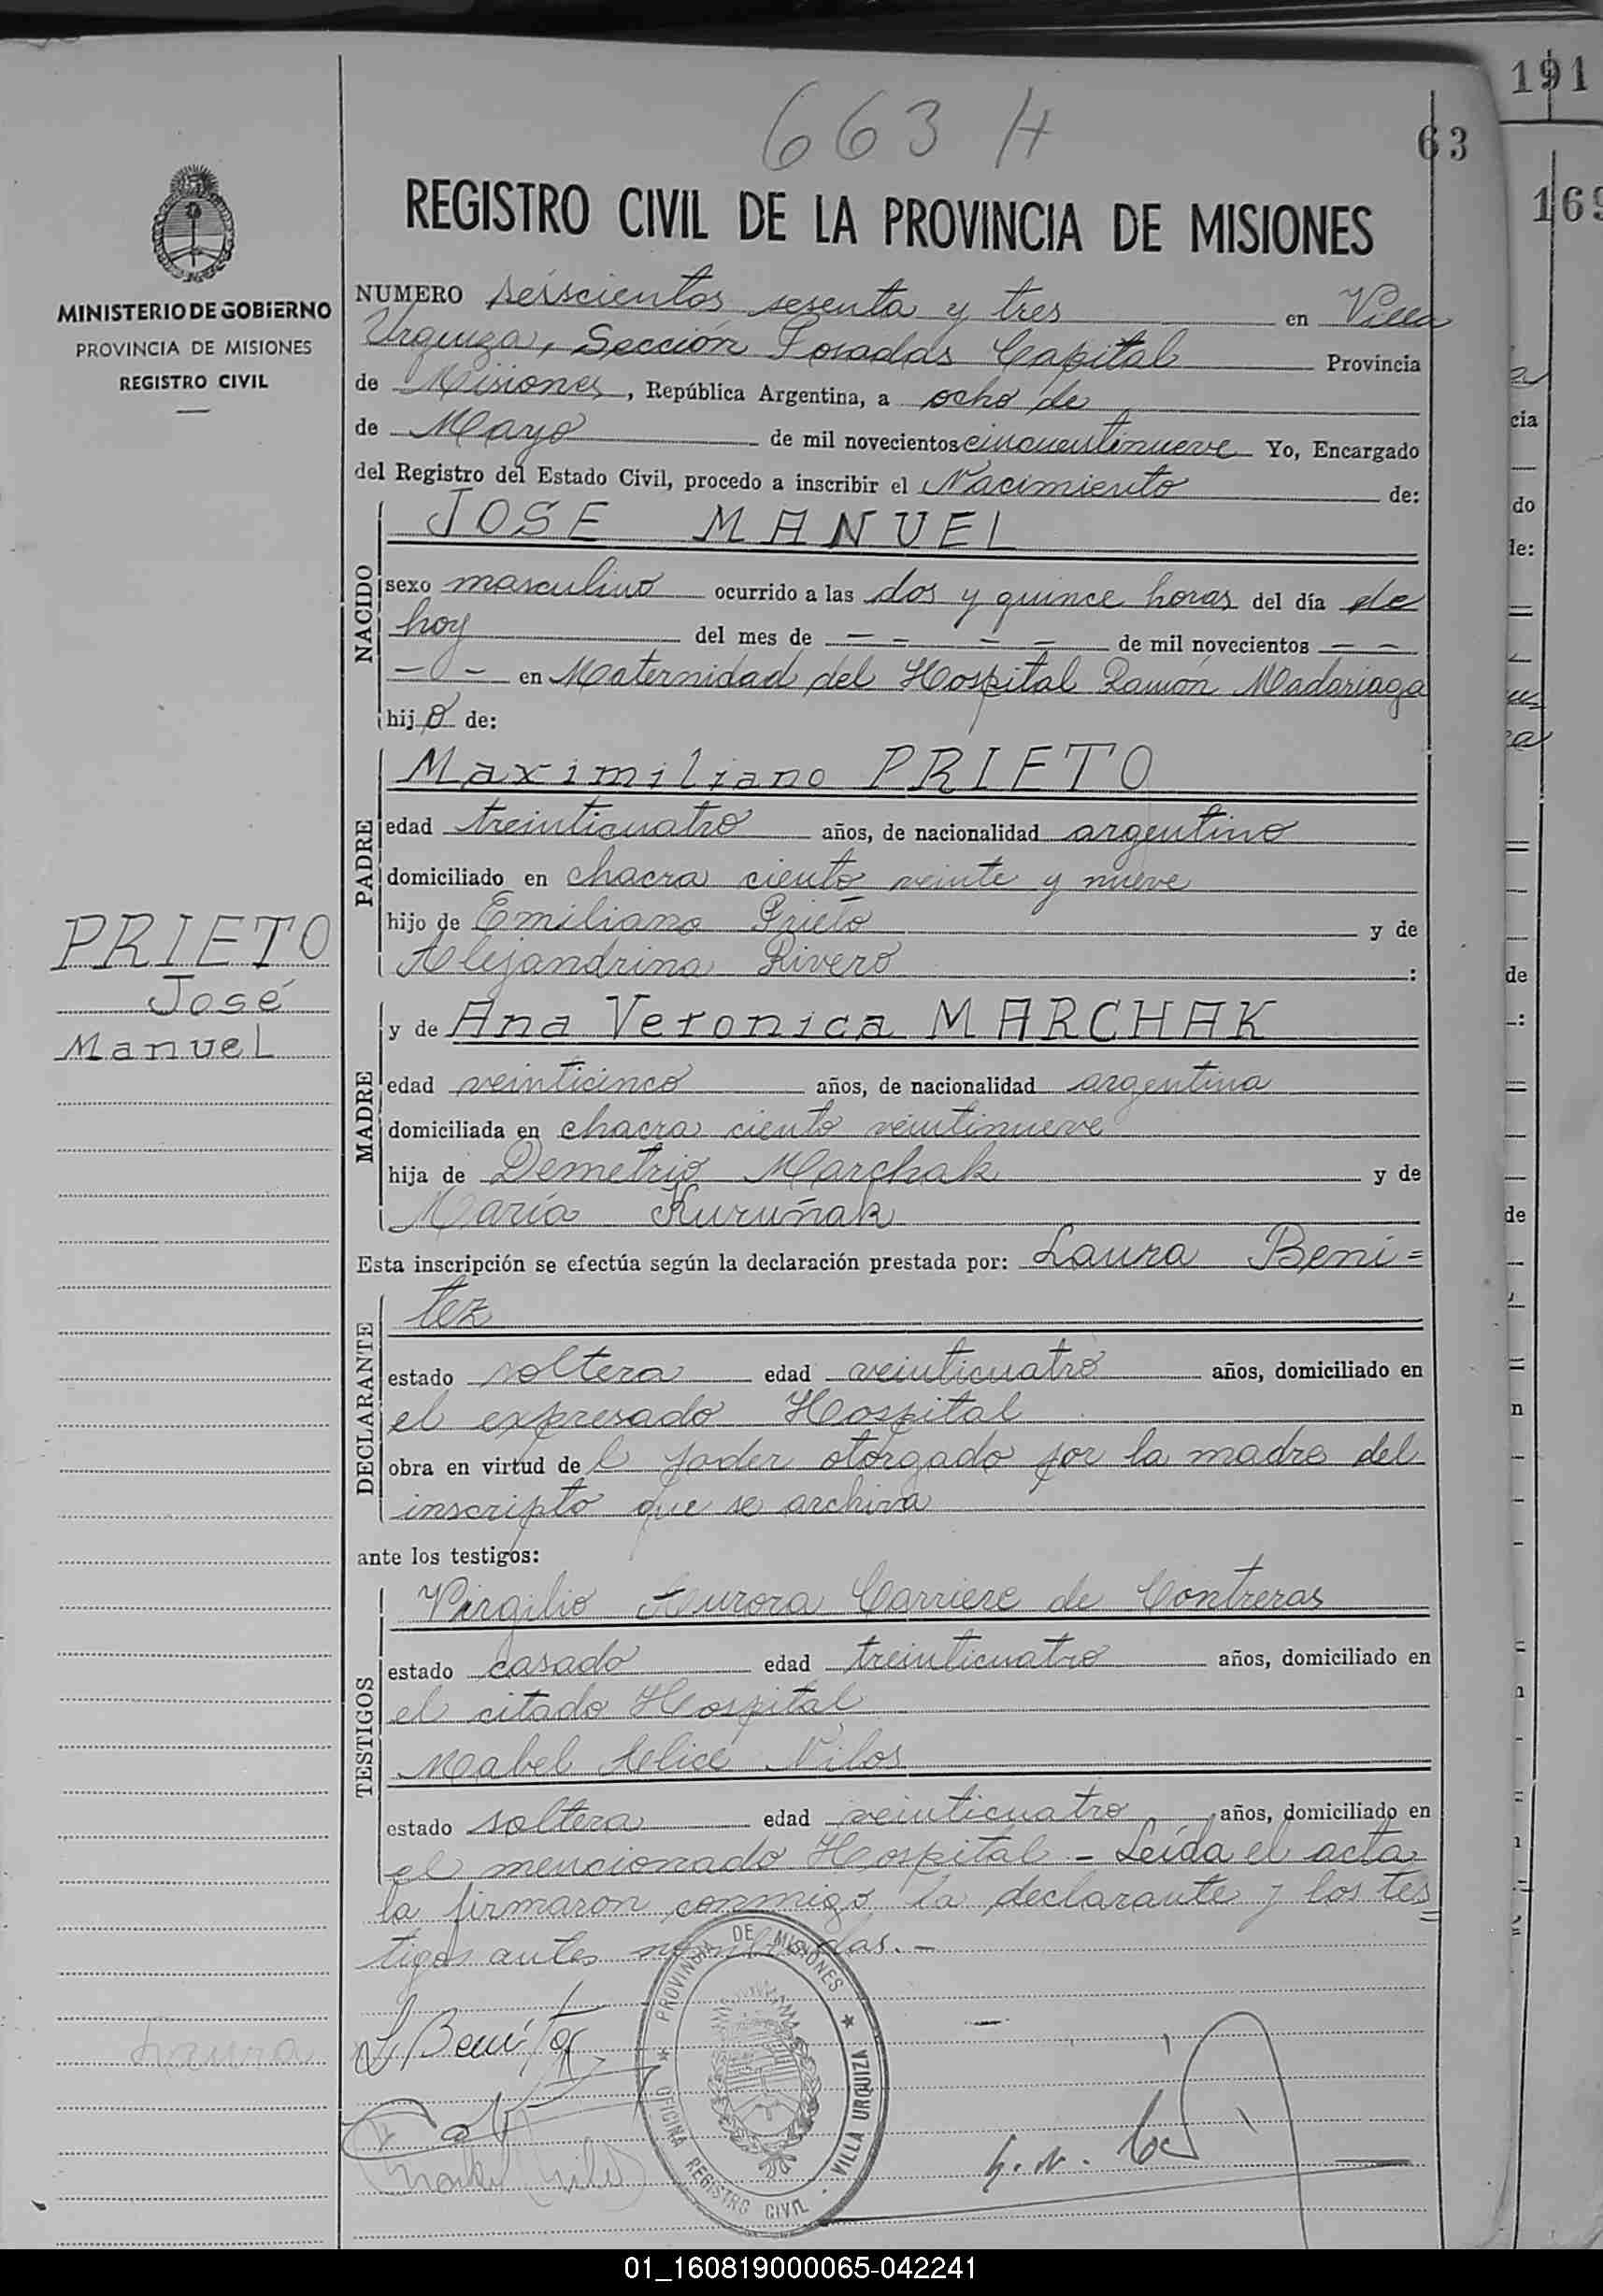 191
663 H
63
169
REGISTRO CIVIL DE LA PROVINCIA DE MISIONES
MINISTERIO DE GOBIERNO
PROVINCIA DE MISIONES
REGISTRO CIVIL
NUMERO seiscientos sesenta y tres en Villa
Urquiza, Sección Posadas Capital Provincia
de Misiones, República Argentina, a ocho de
de Mayo de mil novecientos cincuentinueve Yo, Encargado
del Registro del Estado Civil, procedo a inscribir el Nacimiento de:
NACIDO
JOSE MANUEL
sexo masculino ocurrido a las dos y quince horas del día de
hoy del mes de — — — — de mil novecientos — —
— — en Maternidad del Hospital Ramón Madariaga
hijo de:
PADRE
Maximiliano PRIETO
edad treinticuatro años, de nacionalidad argentino
domiciliado en chacra ciento veinte y nueve
hijo de Emiliano Prieto y de
Alejandrina Rivero :
PRIETO
José
Manuel
MADRE
y de Ana Veronica MARCHAK
edad veinticinco años, de nacionalidad argentina
domiciliada en chacra ciento veintinueve
hija de Demetrio Marchak y de
María Kuruñak
Esta inscripción se efectúa según la declaración prestada por: Laura Beni=
DECLARANTE
tez
estado soltera edad veinticuatro años, domiciliado en
el expresado Hospital
obra en virtud de l poder otorgado por la madre del
inscripto que se archiva
ante los testigos:
TESTIGOS
Virgilio Aurora Carriere de Contreras
estado casado edad treinticuatro años, domiciliado en
el citado Hospital
Mabel Alice Vilos
estado soltera edad veinticuatro años, domiciliado en
el mencionado Hospital - Leída el acta
la firmaron conmigo la declarante y los tes=
tigos antes nombradas.-
Laura
L Benitez
PROVINCIA DE MISIONES
OFICINA REGISTRO CIVIL - VILLA URQUIZA
01_160819000065-042241